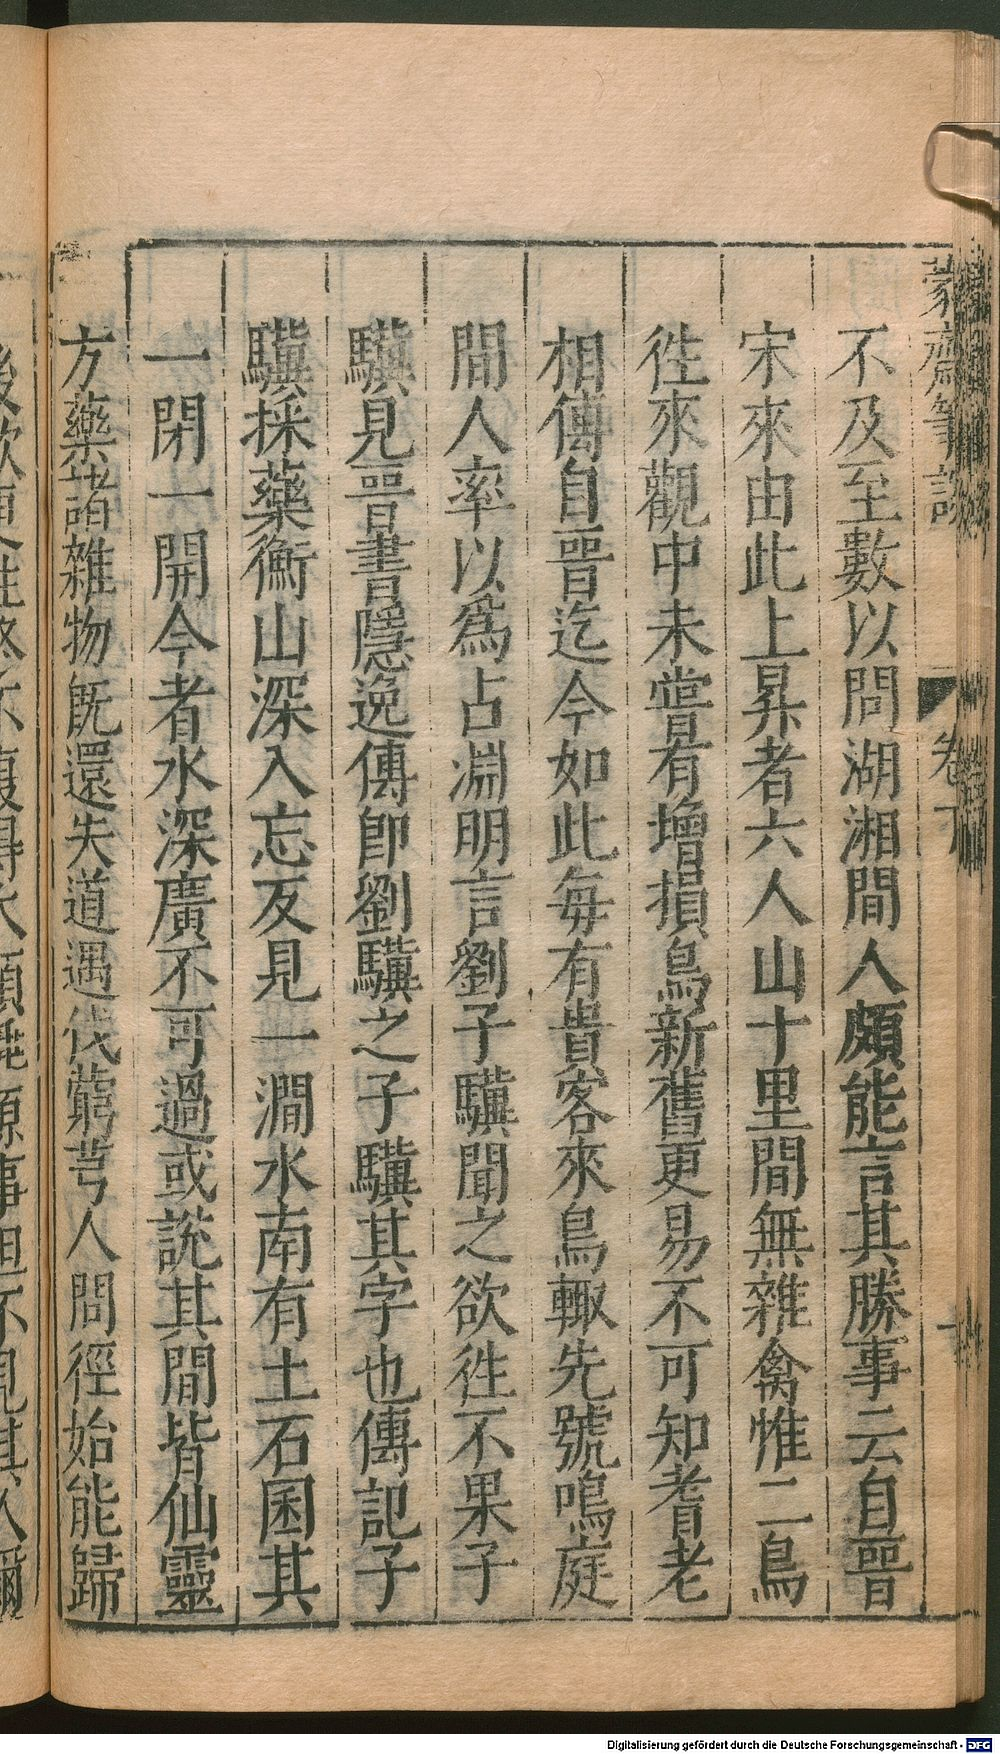 蒙齋筆談 卷下
不及至數以問湖湘間人頗能言其勝事云自晉
宋來由此上昇者六人山十里間無雜禽惟二鳥
徃來觀中未嘗有增損鳥新舊更易不可知耆老
相傳自晉迄今如此每有貴客來鳥輙先號鳴庭
間人率以爲占淵明言劉子驥聞之欲徃不果子
驥見晉書隱逸傳卽劉驎之子驥其字也傳記子
驥採藥衡山深入忘反見一澗水南有土石囷其
一閉一開今者水深廣不可過或說其間皆仙靈
方藥諸雜物旣還失道遇伐薪弓人問徑始能歸
Digitalisierung gefördert durch die Deutsche Forschungsgemeinschaft - DFG